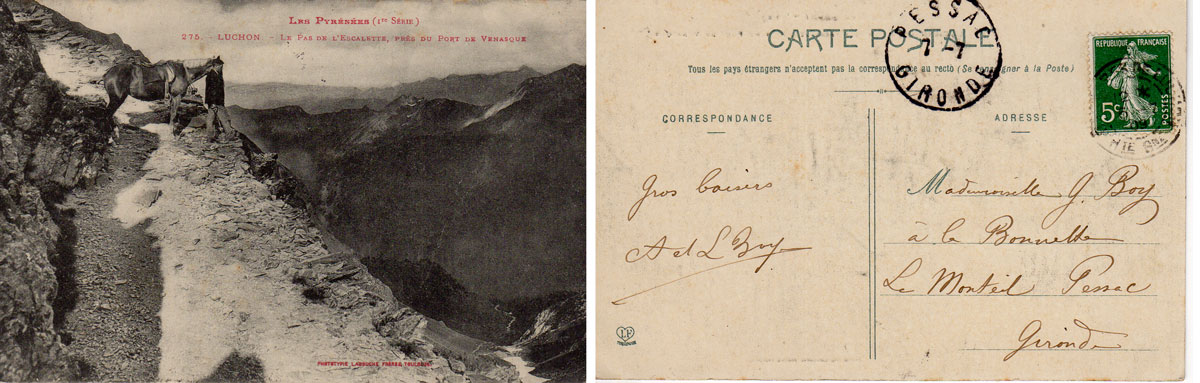 LES PYRÉNÉES (1re SÉRIE)
275. - LUCHON. - LE PAS DE L'ESCALETTE, PRÈS DU PORT DE VENASQUE
PHOTOTYPIE LABOUCHE FRÈRES TOULOUSE
CARTE POSTALE
Tous les pays étrangers n'acceptent pas la correspondance au recto (Se renseigner à la Poste)
PESSAC
7 -7
GIRONDE
REPUBLIQUE FRANÇAISE
5c
POSTES
CORRESPONDANCE
ADRESSE
Gros baisers
A et L Boy
LF
TOULOUSE
Mademoiselle G. Boy
à la Bonnette
Le Monteil Pessac
Gironde